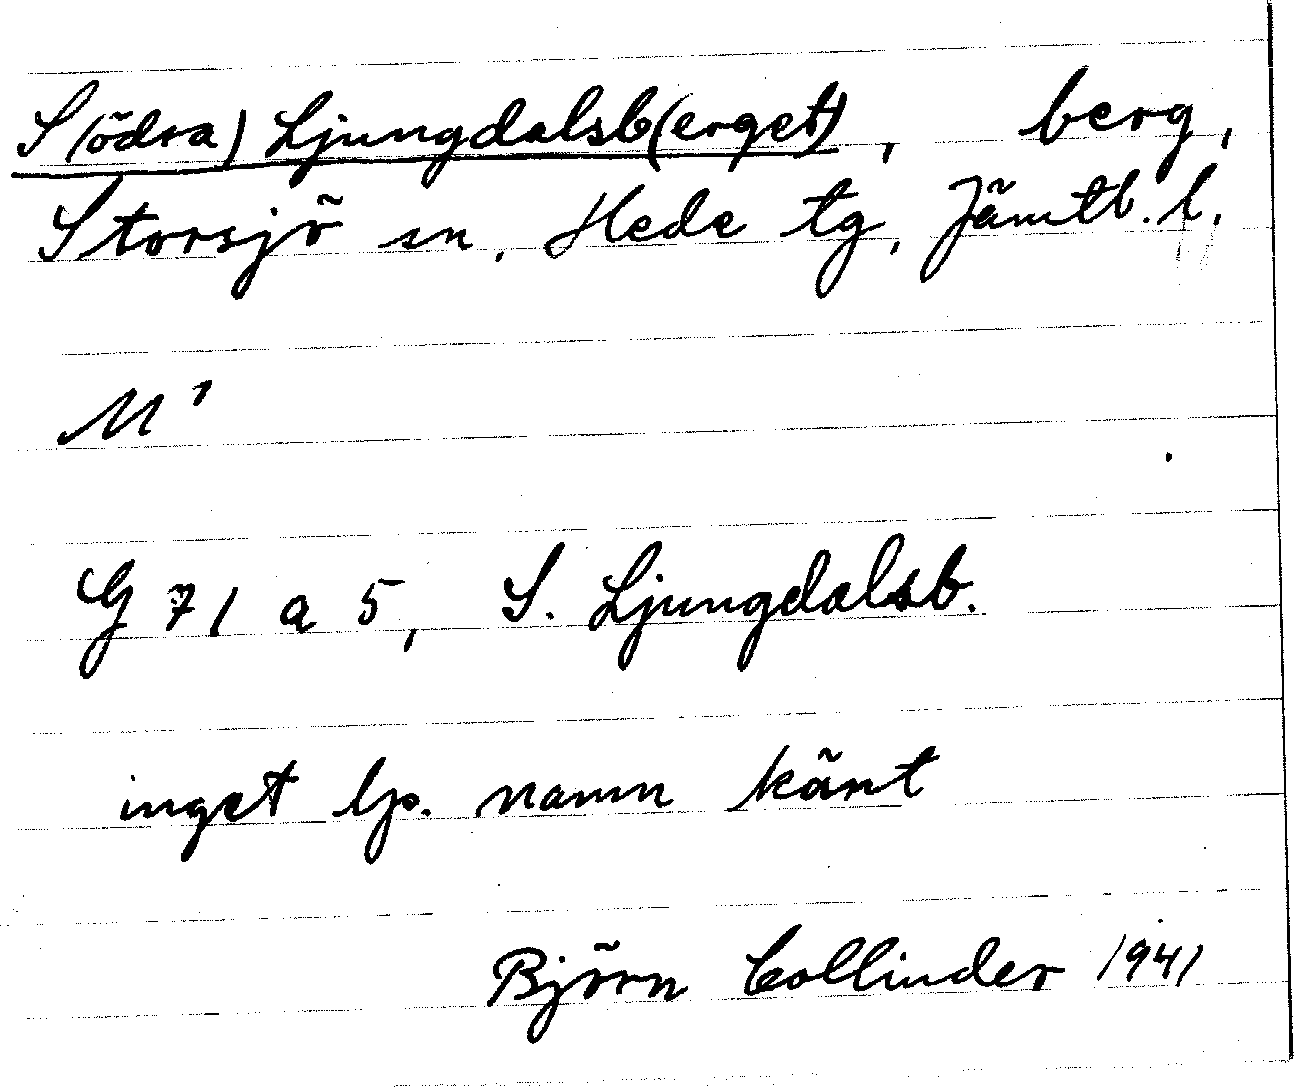 S(ödra) Ljungdalsb(erget), berg,
Storsjö sn, Hede tg, Jämtl. l.
M¹
G 71 a 5, S. Ljungdalsb.
inget lp. namn känt
Björn Collinder 1941